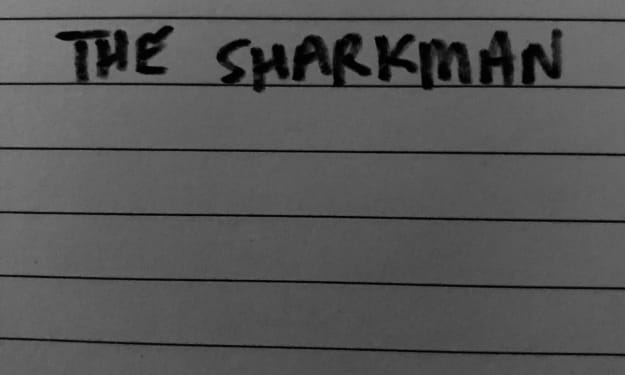 THE SHARKMAN